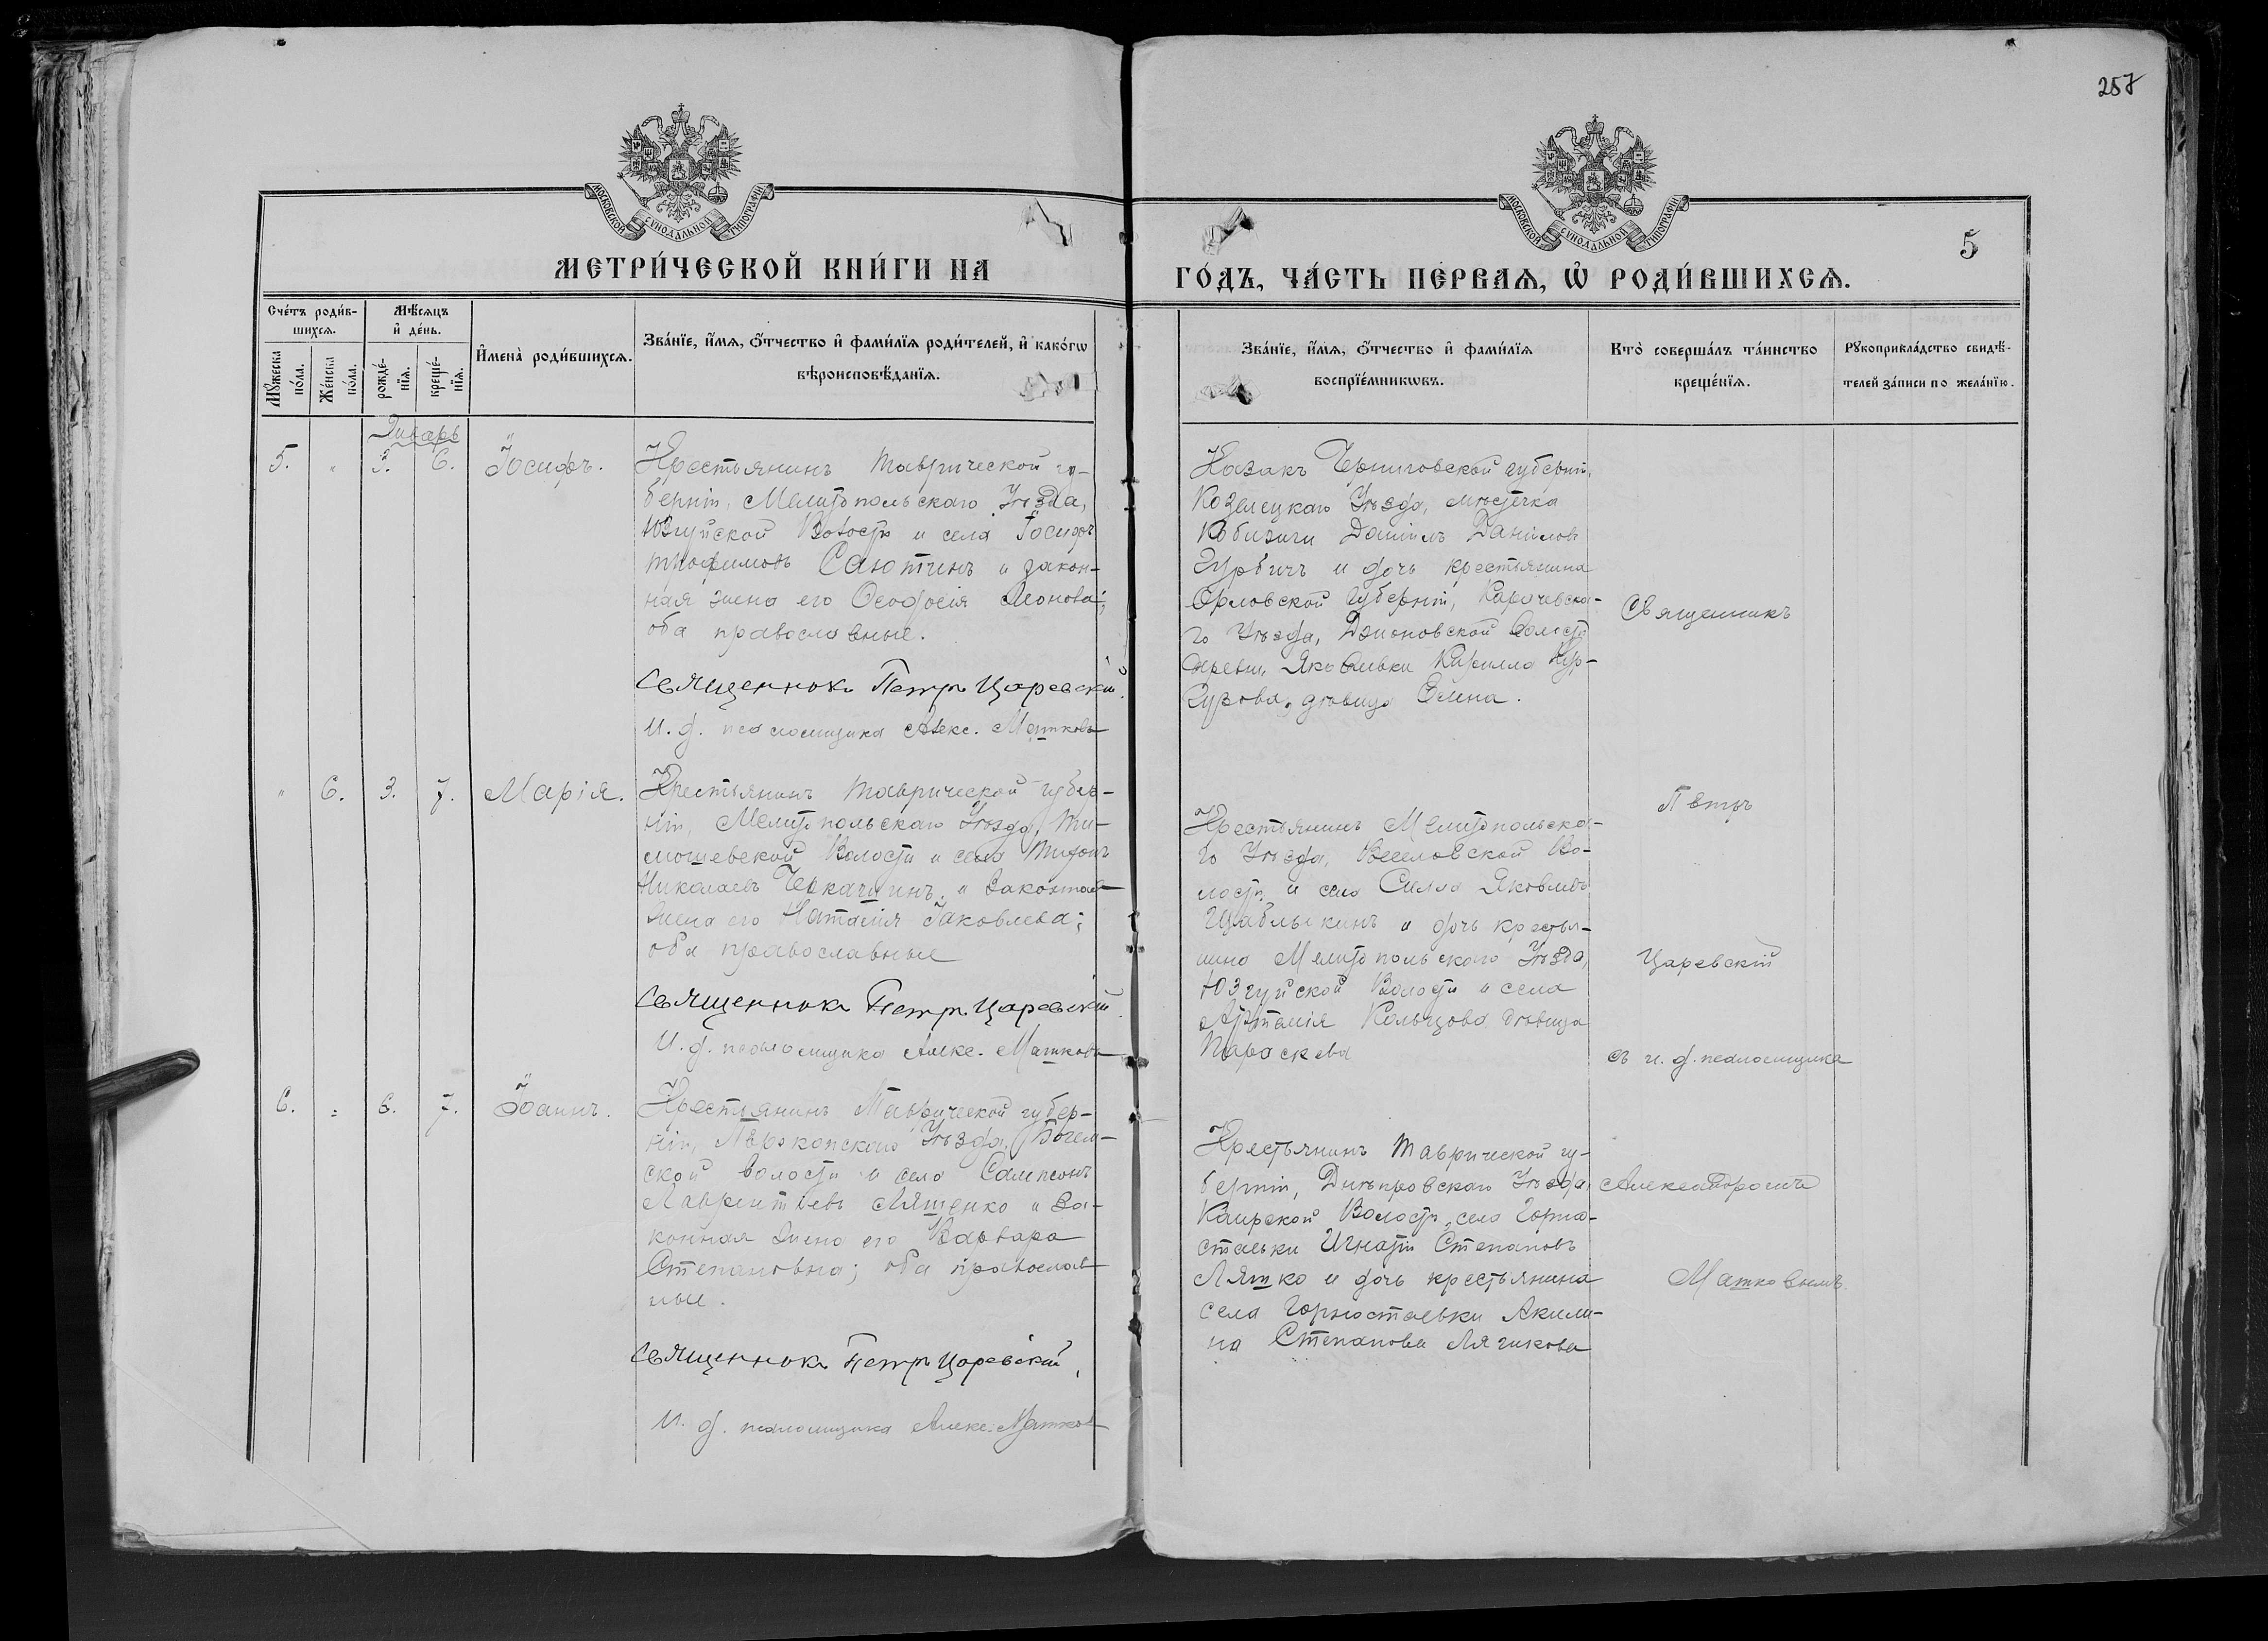 257
МОСКОВСКОЙ СѴНОДАЛЬНОЙ ТИПОГРАФІИ
МОСКОВСКОЙ СѴНОДАЛЬНОЙ ТИПОГРАФІИ
5
МЕТРИ́ЧЕСКОЙ КНИ́ГИ НА
ГО́ДЪ, ЧА́СТЬ ПЕ́РВАѦ, Ѡ҆ РОДИ́ВШИХСѦ.
Сче́тъ роди́в-
шихсѧ.
Мꙋжеска по́ла.
Же́нска по́ла.
Мѣ́сѧцъ
и҆ де́нь.
рожде́-
нїѧ.
креще́-
нїѧ.
И҆мена̀ роди́вшихсѧ.
Зва́нїе, и҆́мѧ, ѻ҆́тчество и҆ фами́лїѧ роди́телей, и҆ како́гѡ
вѣроисповѣ́данїѧ.
Зва́нїе, и҆́мѧ, ѻ҆́тчество и҆ фами́лїѧ
воспрїе́мникѡвъ.
Кто̀ соверша́лъ та́инство
креще́нїѧ.
Рꙋкоприкла́дство свидѣ́-
телей за́писи по жела́нїю.
Январь
5. " 3. 6. Іосифъ.
Крестьянинъ Таврической гу-
берніи, Мелитопольскаго Уѣзда,
Юзкуйской Волости и села Іосифъ
Трофимовъ Саютинъ и закон-
ная жена его Ѳеодосія Леонова;
оба православные.
Священникъ Петръ Царевскій.
И. д. псаломщика Алекс. Матковъ
Казакъ Черниговской губерніи,
Козелецкаго Уѣзда, мѣстечка
Кобижчи Даніилъ Даниловъ
Гурбичъ и дочь крестьянина
Орловской губерніи, Карачевска-
го Уѣзда, волости
деревни Яковлевки Кирилла Кур-
гузова, дѣвица Елена.
" 6. 3. 7. Марія.
Крестьянинъ Таврической губер-
ніи, Мелитопольскаго Уѣзда, Ти-
мошевской Волости и села Тихонъ
Николаевъ и законная
жена его Наталія Іаковлева;
оба православные
Священникъ Петръ Царевскій.
И. д. псаломщика Алекс. Матковъ
Крестьянинъ Мелитопольска-
го Уѣзда, Веселовской Во-
лости и села Сила Яковлевъ
Щаблыкинъ и дочь крестья-
нина Мелитопольскаго Уѣзда,
Юзкуйской Волости и села
Кольцова дѣвица
Параскева
6. " 6. 7. Іоаннъ.
Крестьянинъ Таврической губер-
ніи, Перекопскаго Уѣзда, Богем-
ской волости и села Сампсонъ
Лаврентіевъ Ляшенко и за-
конная жена его Варвара
Степановна; оба православ-
ные.
Священникъ Петръ Царевскій,
И. д. псаломщика Алекс. Матков
Крестьянинъ Таврической гу-
берніи, Днѣпровскаго Уѣзда,
Каирской Волости, села Горно-
стаевки Игнатій Степановъ
Ляшко и дочь крестьянина
села Горностаевки Акили-
на Степанова Лячикова
Священникъ
Петръ
Царевскій
съ и. д. псаломщика
Александромъ
Матковымъ